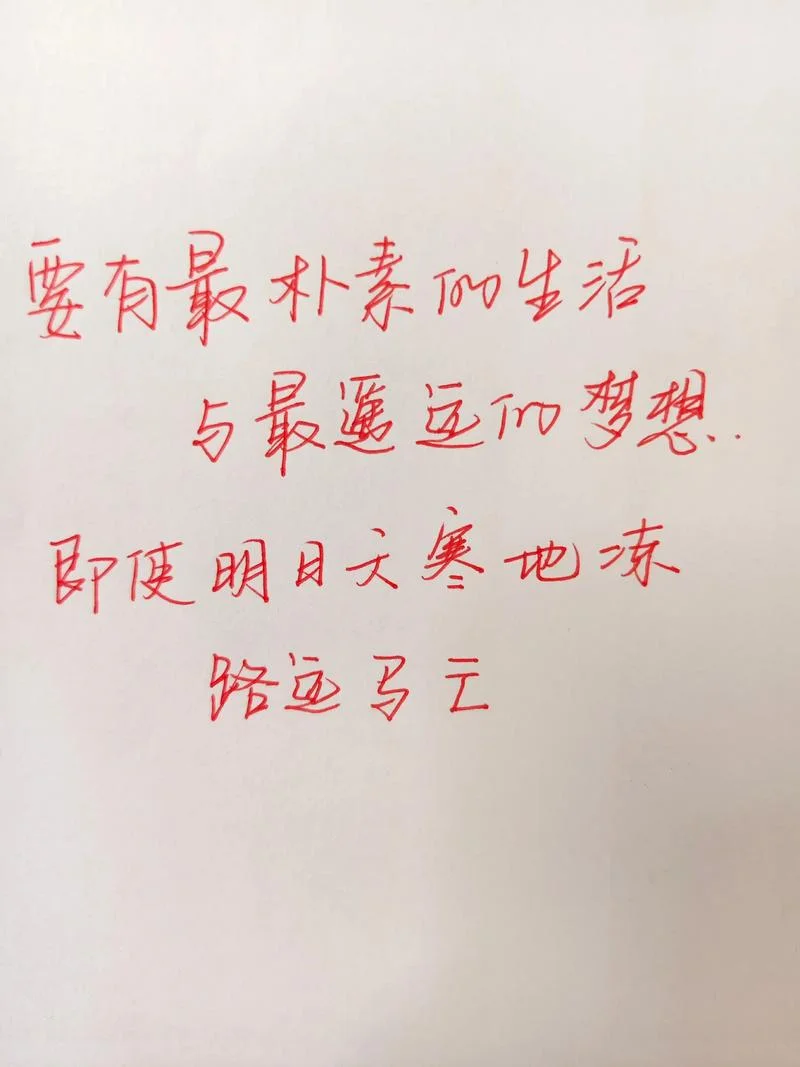 要有最朴素的生活
与最遥远的梦想.
即使明日天寒地冻
路远马亡